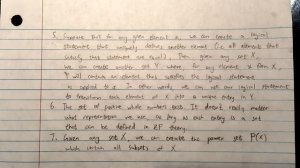 5. Suppose that for any given element a, we can create a logical
statement that uniquely defines another element (i.e. all elements that
satisfy that statement are equal). Then given any set X,
we can create another set Y where, for any element x from X,
Y will contain an element that satisfies the logical statement
as applied to x. In other words we can use our logical statement
to transform each element of X into a unique entry in Y.
6. The set of positive whole numbers exists. It doesn't really matter
what representation we use, so long as each entry is a set
that can be defined in ZF theory.
7. Given any set X, we can create the power set P(X)
which contains all subsets of X